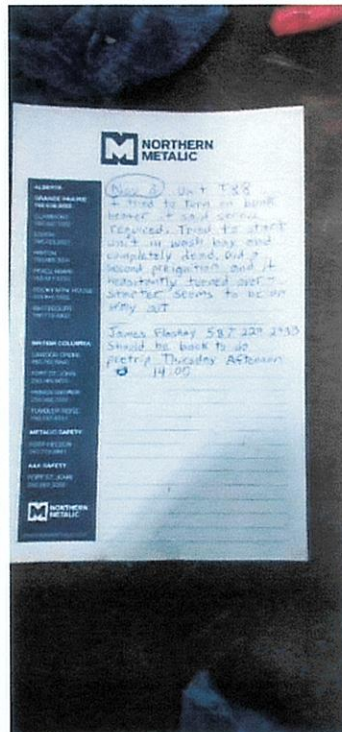 NORTHERN
METALIC
ALBERTA
GRANDE PRAIRIE
CLAIRMONT
EDSON
HINTON
PEACE RIVER
ROCKY MTN HOUSE
WHITECOURT
BRITISH COLUMBIA
DAWSON CREEK
FORT ST. JOHN
PRINCE GEORGE
TUMBLER RIDGE
METALIC SAFETY
FORT NELSON
AAA SAFETY
FORT ST. JOHN
NORTHERN
METALIC
Nov 4 Unit T88
tried to turn on bunk
heater it said service
required. Tried to start
unit in wash bay and
completely dead. Did a
second preignition and it
hesitantly turned over -
starter seems to be on
way out
James 587 229
Should be back to do
pretrip Thursday Afternoon
14:00